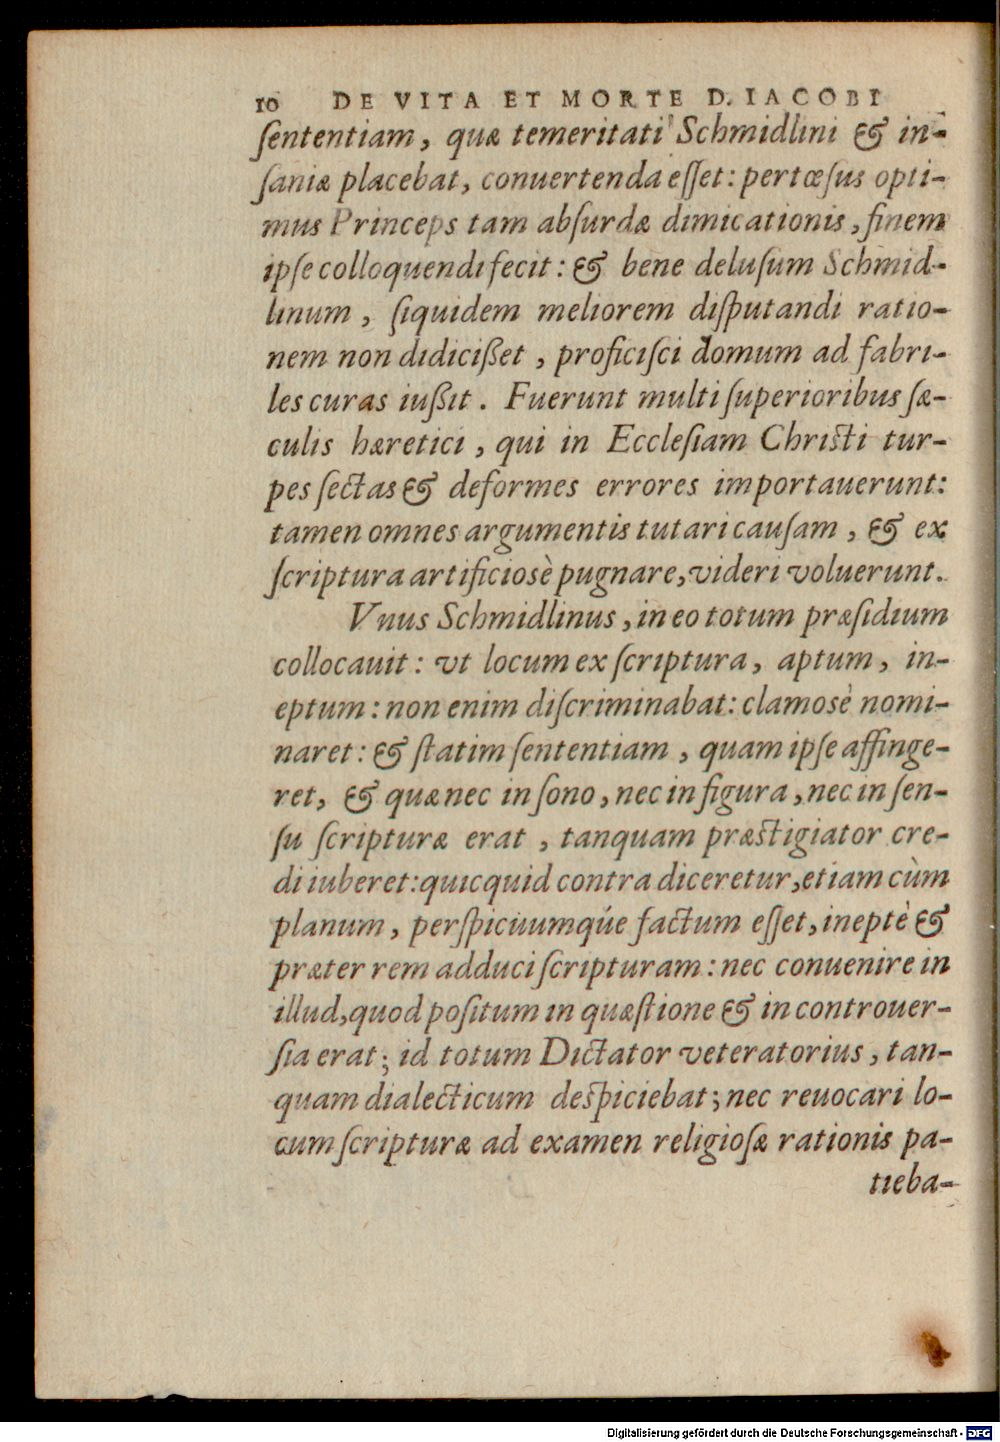 10 DE VITA ET MORTE D. IACOBI
ſententiam, quæ temeritati Schmidlini & in-
ſaniæ placebat, conuertenda eſſet: pertœſus opti-
mus Princeps tam abſurdæ dimicationis, finem
ipſe colloquendi fecit: & bene deluſum Schmid-
linum, ſiquidem meliorem diſputandi ratio-
nem non didicißet, proficiſci domum ad fabri-
les curas iußit. Fuerunt multi ſuperioribus ſæ-
culis hæretici, qui in Eccleſiam Chriſti tur-
pes ſectas & deformes errores importauerunt:
tamen omnes argumentis tutari cauſam, & ex
ſcriptura artificiosè pugnare, videri voluerunt.
Vnus Schmidlinus, in eo totum præſidium
collocauit: vt locum ex ſcriptura, aptum, in-
eptum: non enim diſcriminabat: clamosè nomi-
naret: & ſtatim ſententiam, quam ipſe affinge-
ret, & quæ nec in ſono, nec in figura, nec in ſen-
ſu ſcripturæ erat, tanquam præſtigiator cre-
di iuberet: quicquid contra diceretur, etiam cùm
planum, perſpicuumqúe factum eſſet, ineptè &
præter rem adduci ſcripturam: nec conuenire in
illud, quod poſitum in quæſtione & in controuer-
ſia erat; id totum Dictator veteratorius, tan-
quam dialecticum deſpiciebat; nec reuocari lo-
cum ſcripturæ ad examen religioſæ rationis pa-
tieba-
Digitalisierung gefördert durch die Deutsche Forschungsgemeinschaft - DFG